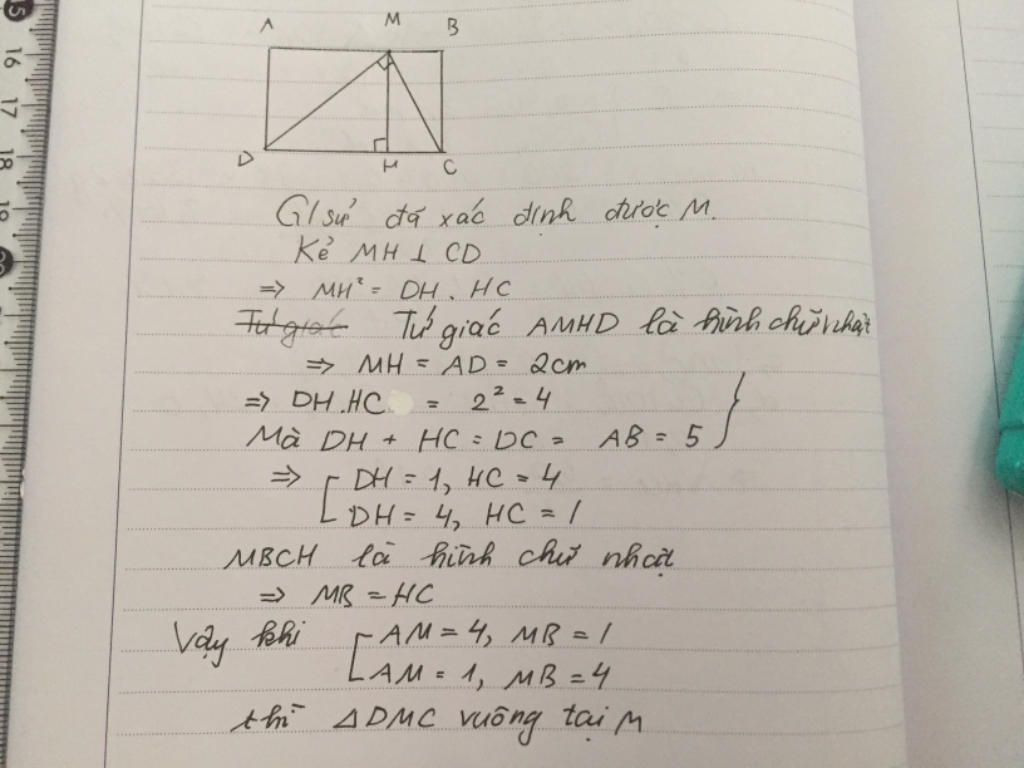 15
16
17
18
19
20
A M B
D H C
GI sử đã xác định được M.
Kẻ MH ⊥ CD
⇒ MH² = DH . HC
Tứ giác Tứ giác AMHD là hình chữ nhật
⇒ MH = AD = 2cm
⇒ DH.HC = 2² = 4
Mà DH + HC = DC = AB = 5
⇒ DH = 1, HC = 4
DH = 4, HC = 1
MBCH là hình chữ nhật
⇒ MB = HC
Vậy khi AM = 4, MB = 1
AM = 1, MB = 4
thì ΔDMC vuông tại M